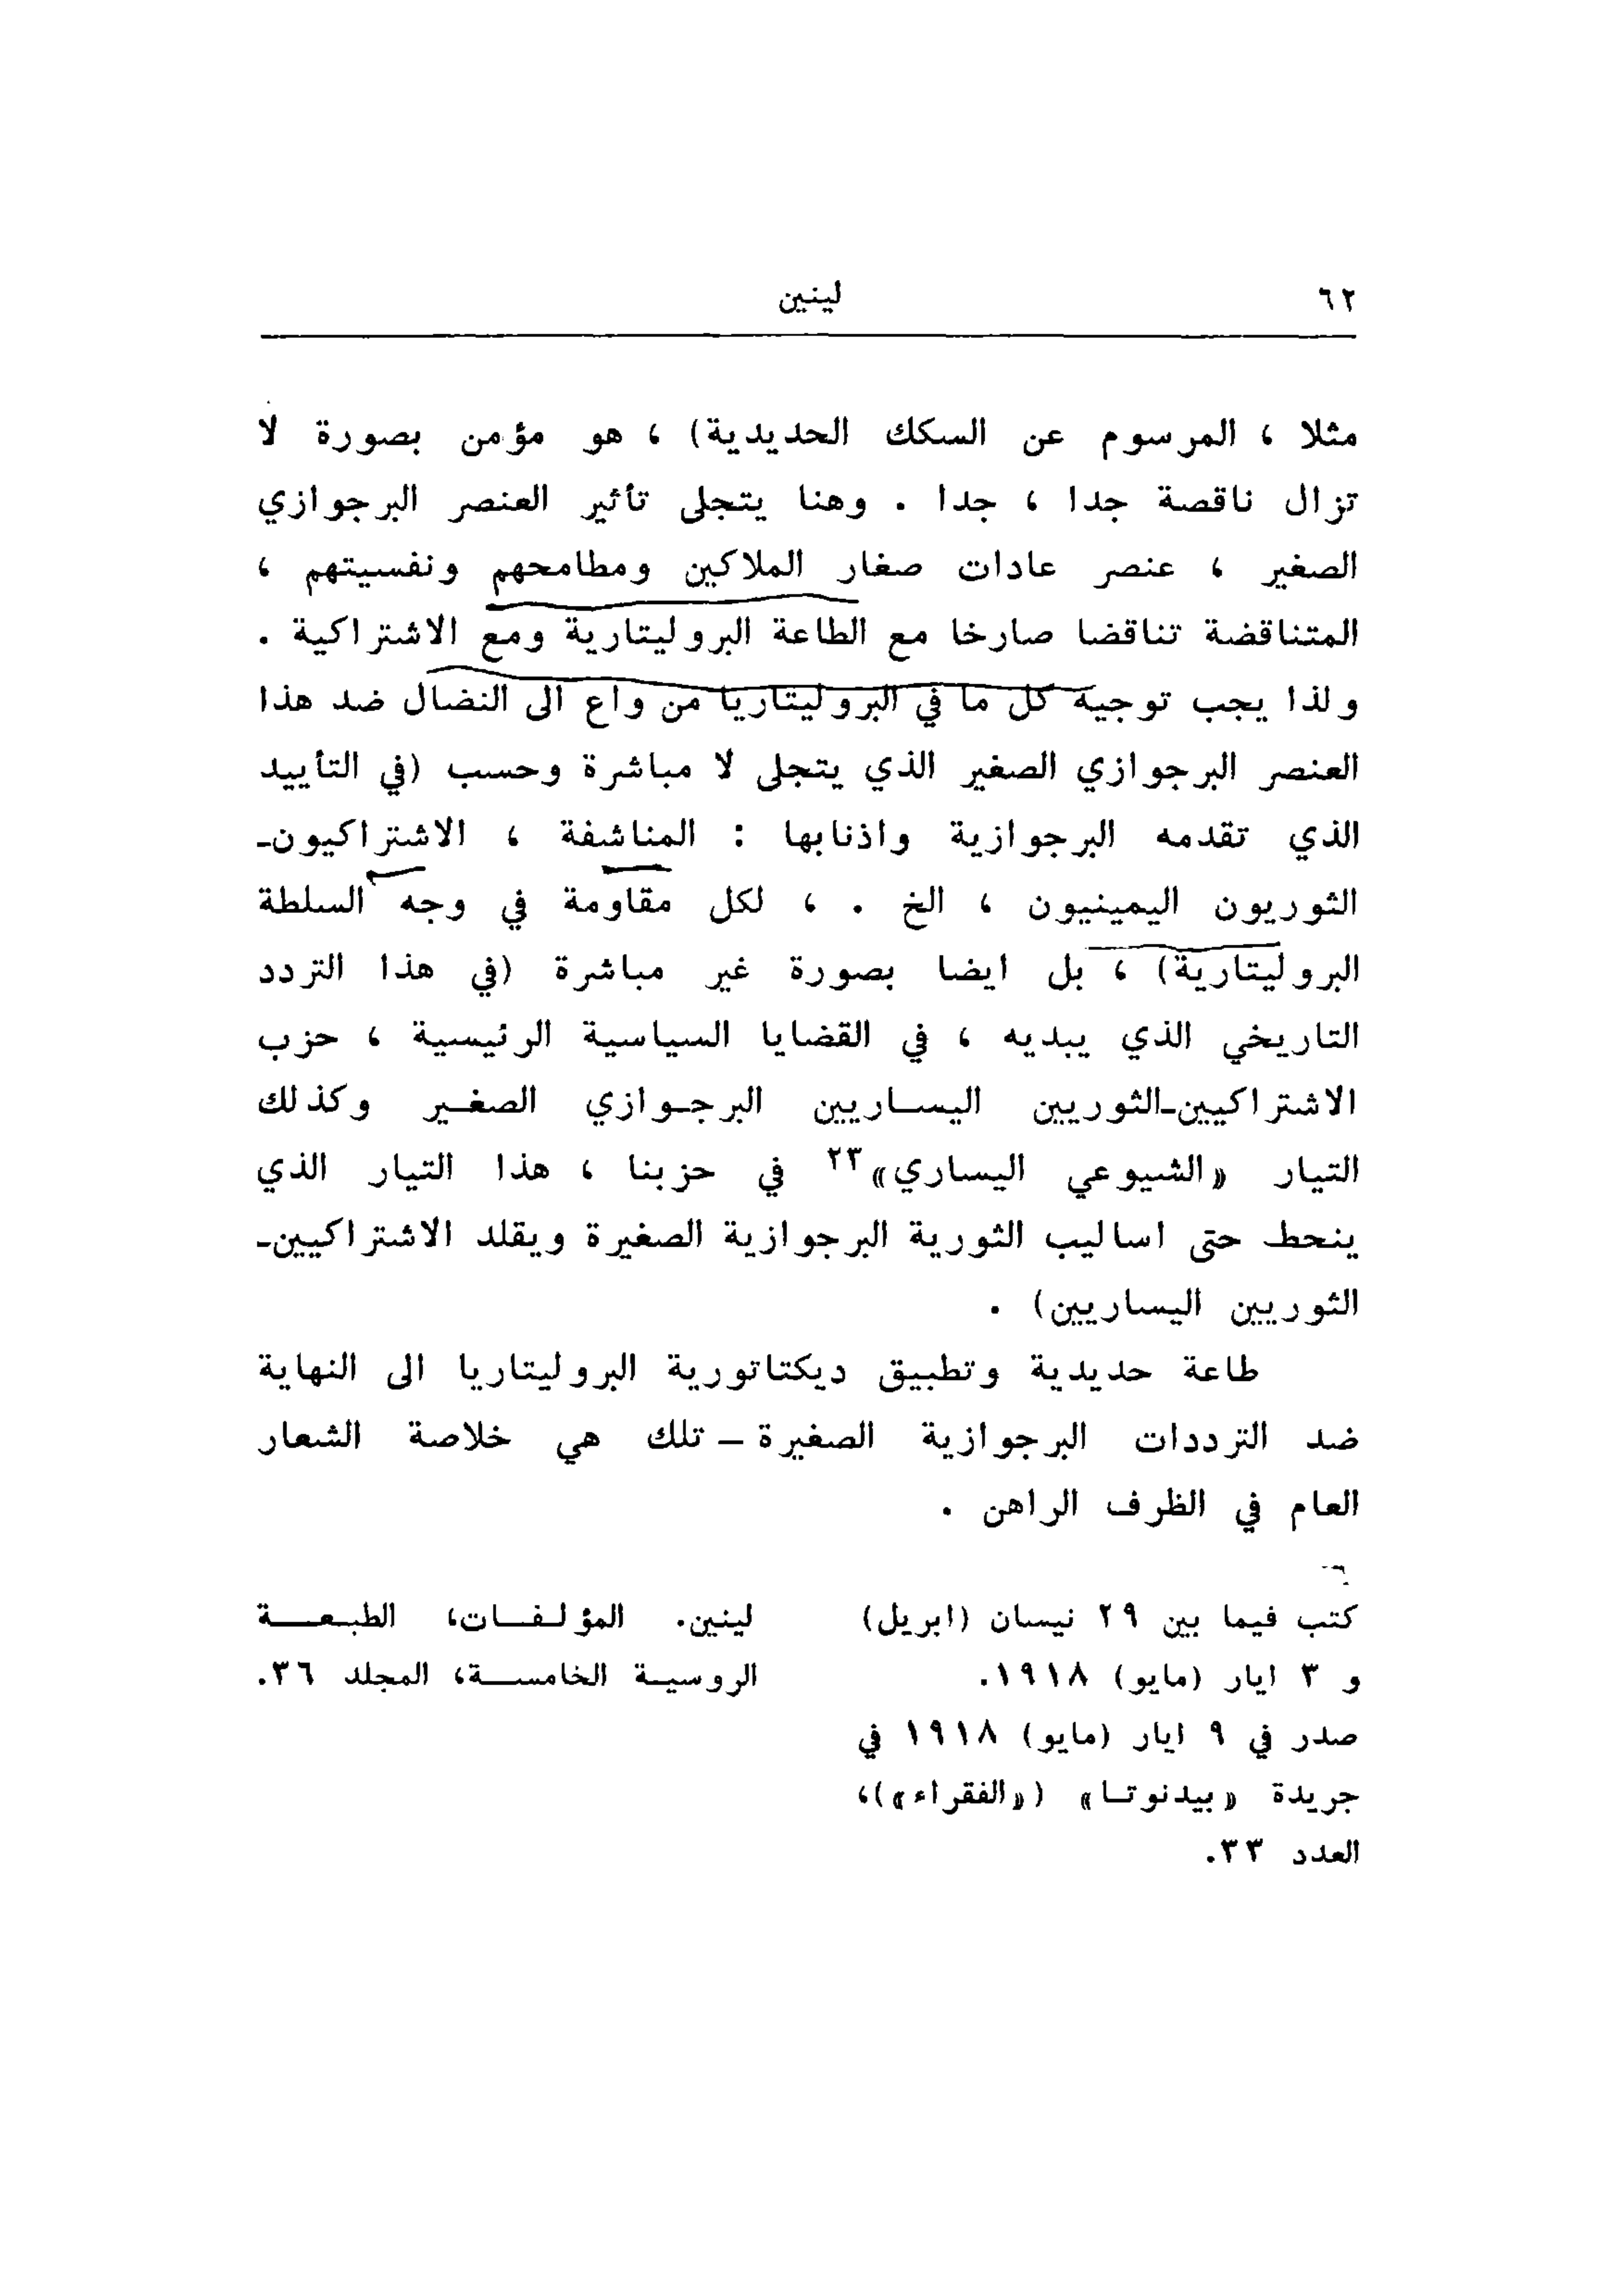 ٦٢
لينين
مثلا ، المرسوم عن السكك الحديدية) ، هو مؤمن بصورة لا
تزال ناقصة جدا ، جدا . وهنا يتجلى تأثير العنصر البرجوازي
الصغير ، عنصر عادات صغار الملاكين ومطامحهم ونفسيتهم ،
المتناقضة تناقضا صارخا مع الطاعة البروليتارية ومع الاشتراكية .
ولذا يجب توجيه كل ما في البروليتاريا من واع الى النضال ضد هذا
العنصر البرجوازي الصغير الذي يتجلى لا مباشرة وحسب (في التأييد
الذي تقدمه البرجوازية واذنابها : المناشفة ، الاشتراكيون-
الثوريون اليمينيون ، الخ . ، لكل مقاومة في وجه السلطة
البروليتارية) ، بل ايضا بصورة غير مباشرة (في هذا التردد
التاريخي الذي يبديه ، في القضايا السياسية الرئيسية ، حزب
الاشتراكيين-الثوريين اليساريين البرجوازي الصغير وكذلك
التيار «الشيوعي اليساري»٢٣ في حزبنا ، هذا التيار الذي
ينحط حتى اساليب الثورية البرجوازية الصغيرة ويقلد الاشتراكيين-
الثوريين اليساريين) .
طاعة حديدية وتطبيق ديكتاتورية البروليتاريا الى النهاية
ضد الترددات البرجوازية الصغيرة – تلك هي خلاصة الشعار
العام في الظرف الراهن .
كتب فيما بين ٢٩ نيسان (ابريل)
و ٣ ايار (مايو) ١٩١٨.
صدر في ٩ ايار (مايو) ١٩١٨ في
جريدة «بيدنوتا» («الفقراء»)،
العدد ٣٣.
لينين. المؤلفات، الطبعة
الروسية الخامسة، المجلد ٣٦.